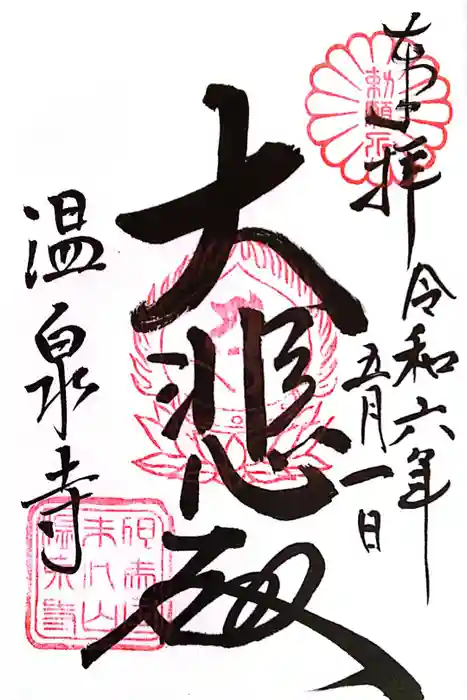 奉拝
勅願所
令和六年
五月一日
大悲殿
温泉寺